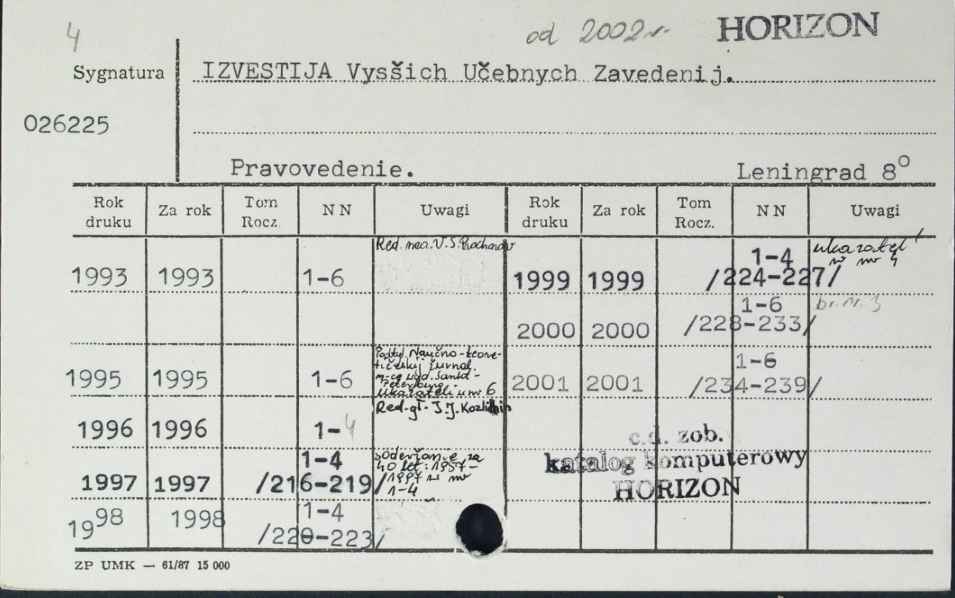 4 od 2002 r. HORIZON
Sygnatura IZVESTIJA Vysšich Učebnych Zavedenij.
026225
Pravovedenie. Leningrad 8°
Rok druku Za rok Tom Rocz. NN Uwagi Rok druku Za rok Tom Rocz. NN Uwagi
Red. nacz. V.S.
1993 1993 1-6 1999 1999 1-4 /224-227/ w nr 4
2000 2000 1-6 /228-233/ br. nr. 3
1995 1995 1-6 Naučno-teore-
tičeskij žurnal 2001 2001 1-6 /234-239/
6
1996 1996 1-4 Red. gł. I.J.
c.d. zob.
1997 1997 1-4 /216-219/ za 40 let: 1957-1997 w nr 1-4
katalog komputerowy
HORIZON
1998 1998 1-4 /220-223/
ZP UMK — 61/87 15 000